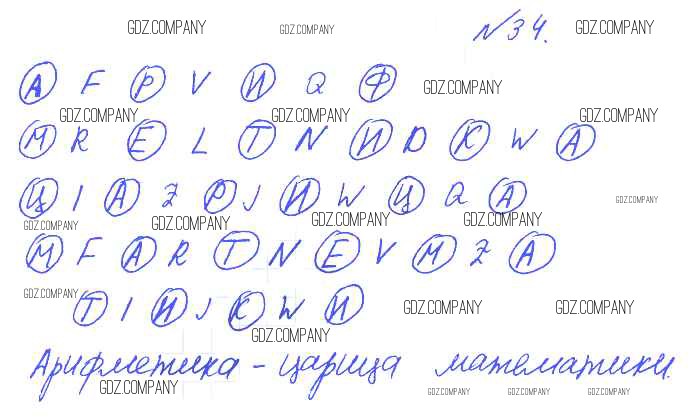 GDZ.COMPANY GDZ.COMPANY №34. GDZ.COMPANY
А F Р V И Q Ф GDZ.COMPANY
GDZ.COMPANY GDZ.COMPANY GDZ.COMPANY
М R Е L Т N И D К W А
Ц I А Z Р J И W Ц Q А GDZ.COMPANY
GDZ.COMPANY GDZ.COMPANY GDZ.COMPANY GDZ.COMPANY
М F А R Т N Е V М Z А
GDZ.COMPANY Т I И J К W И GDZ.COMPANY GDZ.COMPANY
GDZ.COMPANY
Арифметика - царица математики.
GDZ.COMPANY GDZ.COMPANY GDZ.COMPANY GDZ.COMPANY